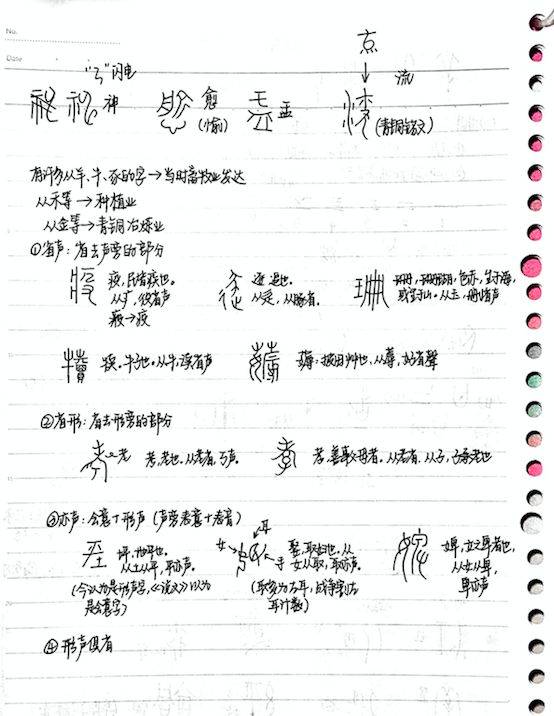 No.
Date
"ろ"闪电
神
愈
(愉)
盂
流
(青铜铭文)
有许多从羊、牛、豕的字→当时畜牧业发达
从禾等→种植业
从金等→青铜冶炼业
①省声：省去声旁的部分
疫，民皆疾也。
从疒，役省声
逐 追也。
从辵，从豚省。
珊
色赤，生于海，
或生于山。从玉，删省声
犊。牛子也。从牛，渎省声
薅：拔田艸也，从蓐，好省声
②省形：省去形旁的部分
老
考，老也。从老省，丂声。
孝，善事父母者。从老省，从子，子承老也
③亦声：会意+形声（声旁表意+表音）
坪，地平也。
从土从平，平亦声。
(今认为是形声字，《说文》认为
是会意字)
女
耳
娶，取妇也。从
女从取，取亦声。
婢，女之卑者也，
从女从卑，
卑亦声
④形声俱省